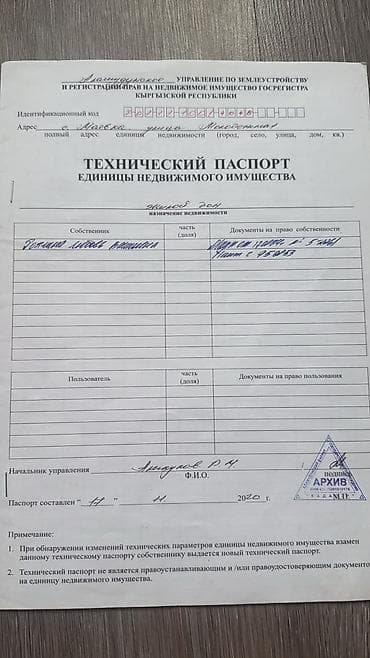 Аламудунское УПРАВЛЕНИЕ ПО ЗЕМЛЕУСТРОЙСТВУ
И РЕГИСТРАЦИИ ПРАВ НА НЕДВИЖИМОЕ ИМУЩЕСТВО ГОСРЕГИСТРА
КЫРГЫЗСКОЙ РЕСПУБЛИКИ
Идентификационный код
Адрес с. Маевка улица
полный адрес единицы недвижимости (город, село, улица, дом, кв.)
ТЕХНИЧЕСКИЙ ПАСПОРТ
ЕДИНИЦЫ НЕДВИЖИМОГО ИМУЩЕСТВА
жилой дом
назначение недвижимости
Собственник часть (доля) Документы на право собственности
Любовь
Пользователь часть (доля) Документы на право пользования
Начальник управления
Ф.И.О. подпись
АРХИВ
М.П.
Паспорт составлен " 2020 г.
Примечание:
1. При обнаружении изменений технических параметров единицы недвижимого имущества взамен
данному техническому паспорту собственнику выдается новый технический паспорт.
2. Технический паспорт не является правоустанавливающим и /или правоудостоверяющим документо
на единицу недвижимого имущества.